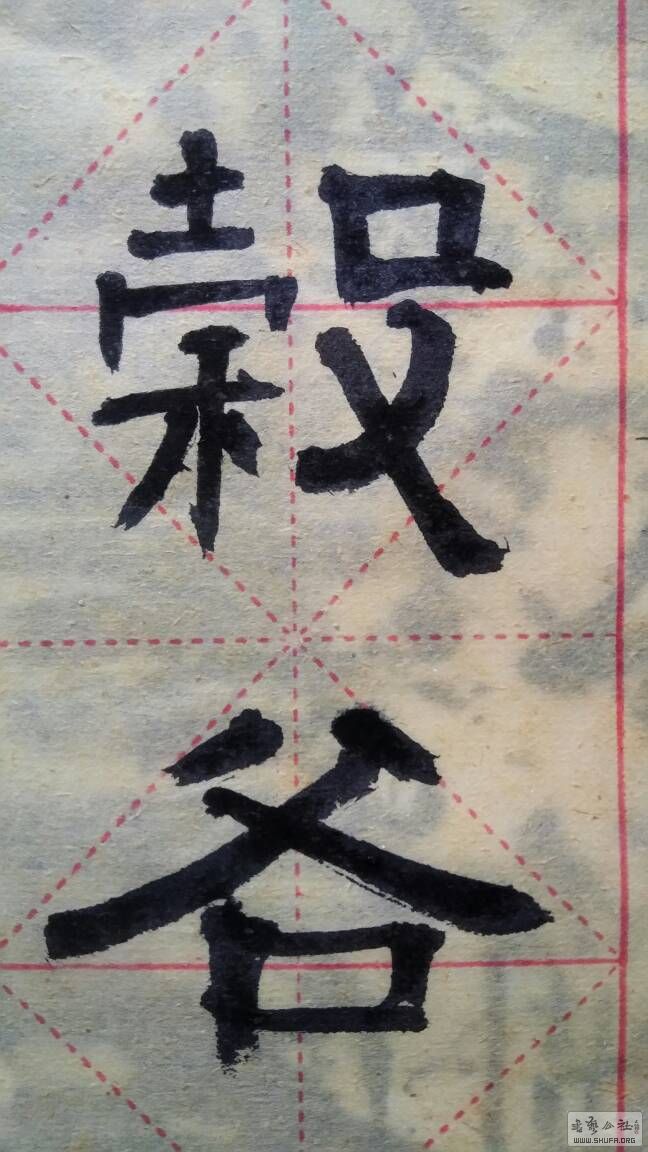 穀
谷
書藝公社
WWW.SHUFA.ORG